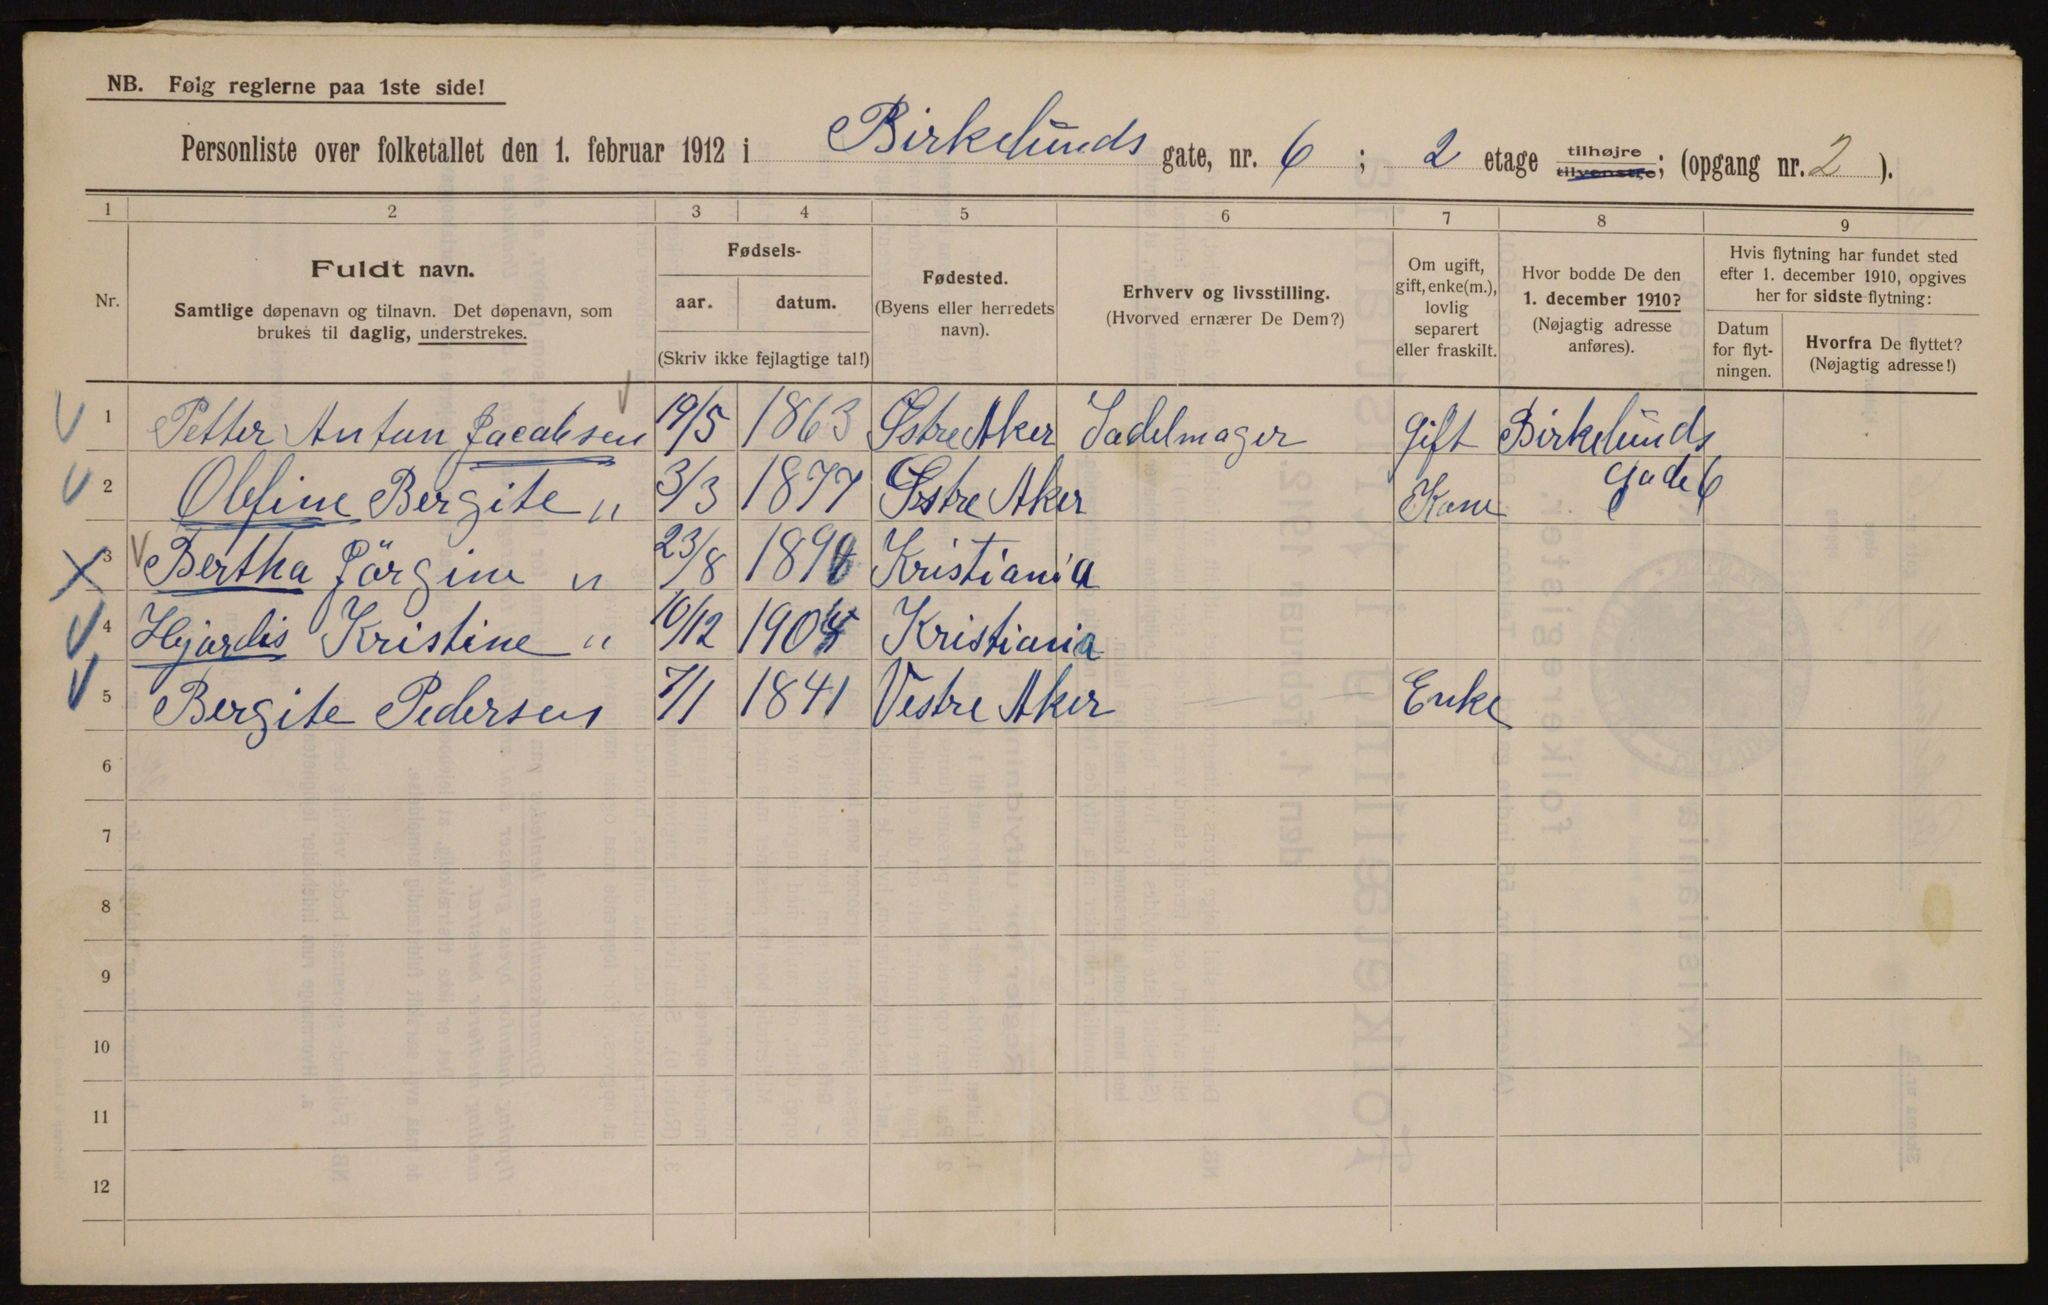 NB. Følg reglerne paa 1ste side!
Personliste over folketallet den 1. februar 1912 i Birkelunds gate, nr. 6 ; 2 etage tilhøjre tilvenstre; (opgang nr. 2 ).
1 2 3 4 5 6 7 8 9
Nr.
Fuldt navn.
Samtlige døpenavn og tilnavn. Det døpenavn, som
brukes til daglig, understrekes.
Fødsels-
aar. datum.
(Skriv ikke fejlagtige tal!)
Fødested.
(Byens eller herredets
navn).
Erhverv og livsstilling.
(Hvorved ernærer De Dem?)
Om ugift,
gift, enke(m.),
lovlig
separert
eller fraskilt.
Hvor bodde De den
1. december 1910?
(Nøjagtig adresse
anføres).
Hvis flytning har fundet sted
efter 1. december 1910, opgives
her for sidste flytning:
Datum
for flyt-
ningen.
Hvorfra De flyttet?
(Nøjagtig adresse!)
1 Petter Anton Jacobsen 19/5 1863 Østre Aker Sadelmager gift Birkelunds
gade 6
2 Olefine Bergite " 3/3 1877 Østre Aker Kone
3 Bertha Jörgine " 23/8 Kristiania
4 Hjørdis Kristine " 10/12 Kristiania
5 Bergite Pedersen 7/1 1841 Vestre Aker Enke
6
7
8
9
10
11
12